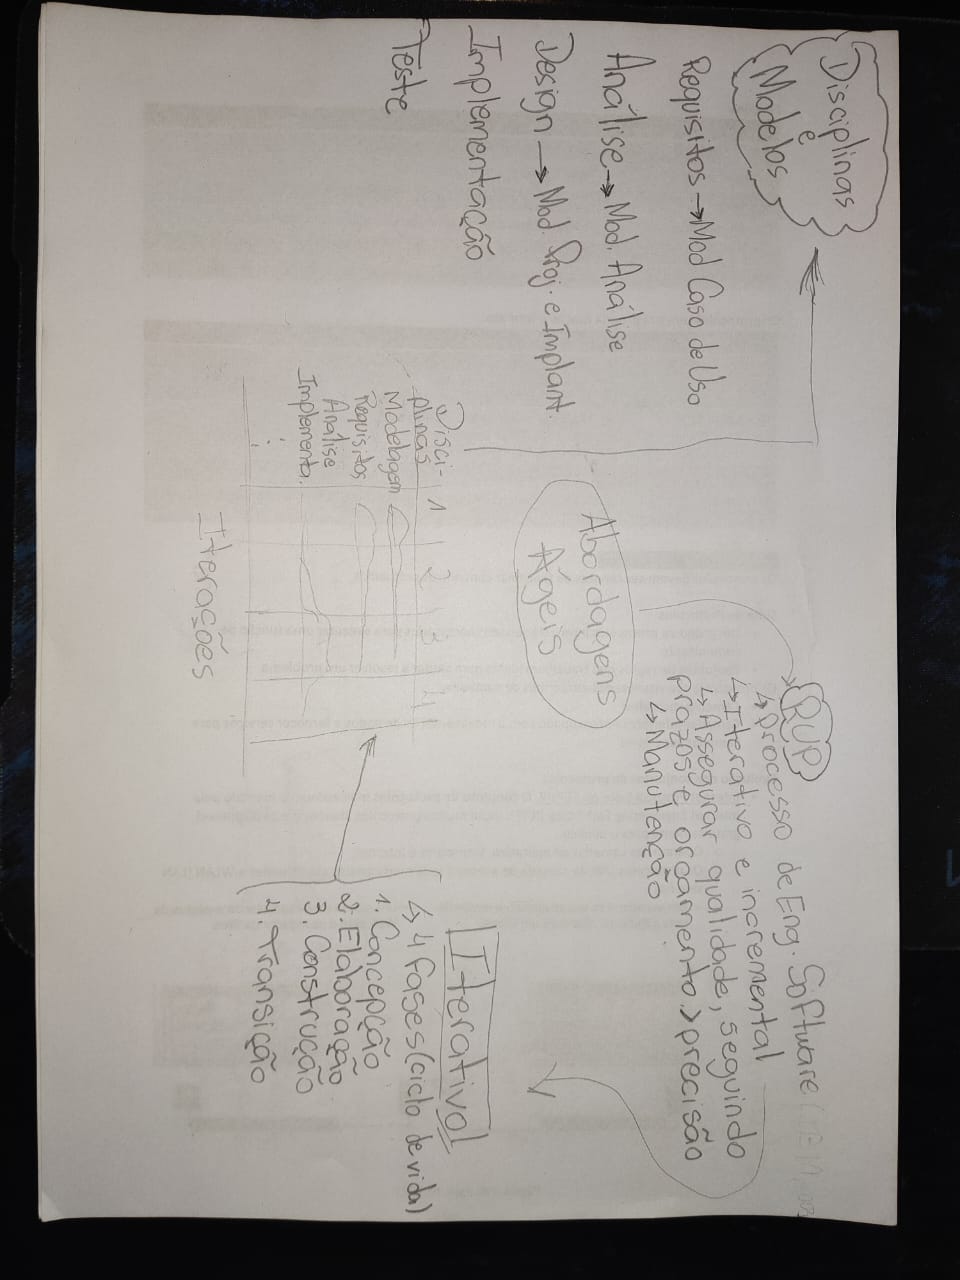 Disciplinas
e
Modelos
Requisitos → Mod Caso de Uso
Análise → Mod. Análise
Design → Mod. Proj. e Implant.
Implementação
Teste
Abordagens
Ágeis
RUP
↳ processo de Eng. Software
↳ Iterativo e incremental
↳ Assegurar qualidade, seguindo
prazos e orçamento > precisão
↳ Manutenção
Iterativo
↳ 4 fases (ciclo de vida)
1. Concepção
2. Elaboração
3. Construção
4. Transição
Disci-
plinas
1 2 3 4
Modelagem
Requisitos
Análise
Implementa.
Iterações